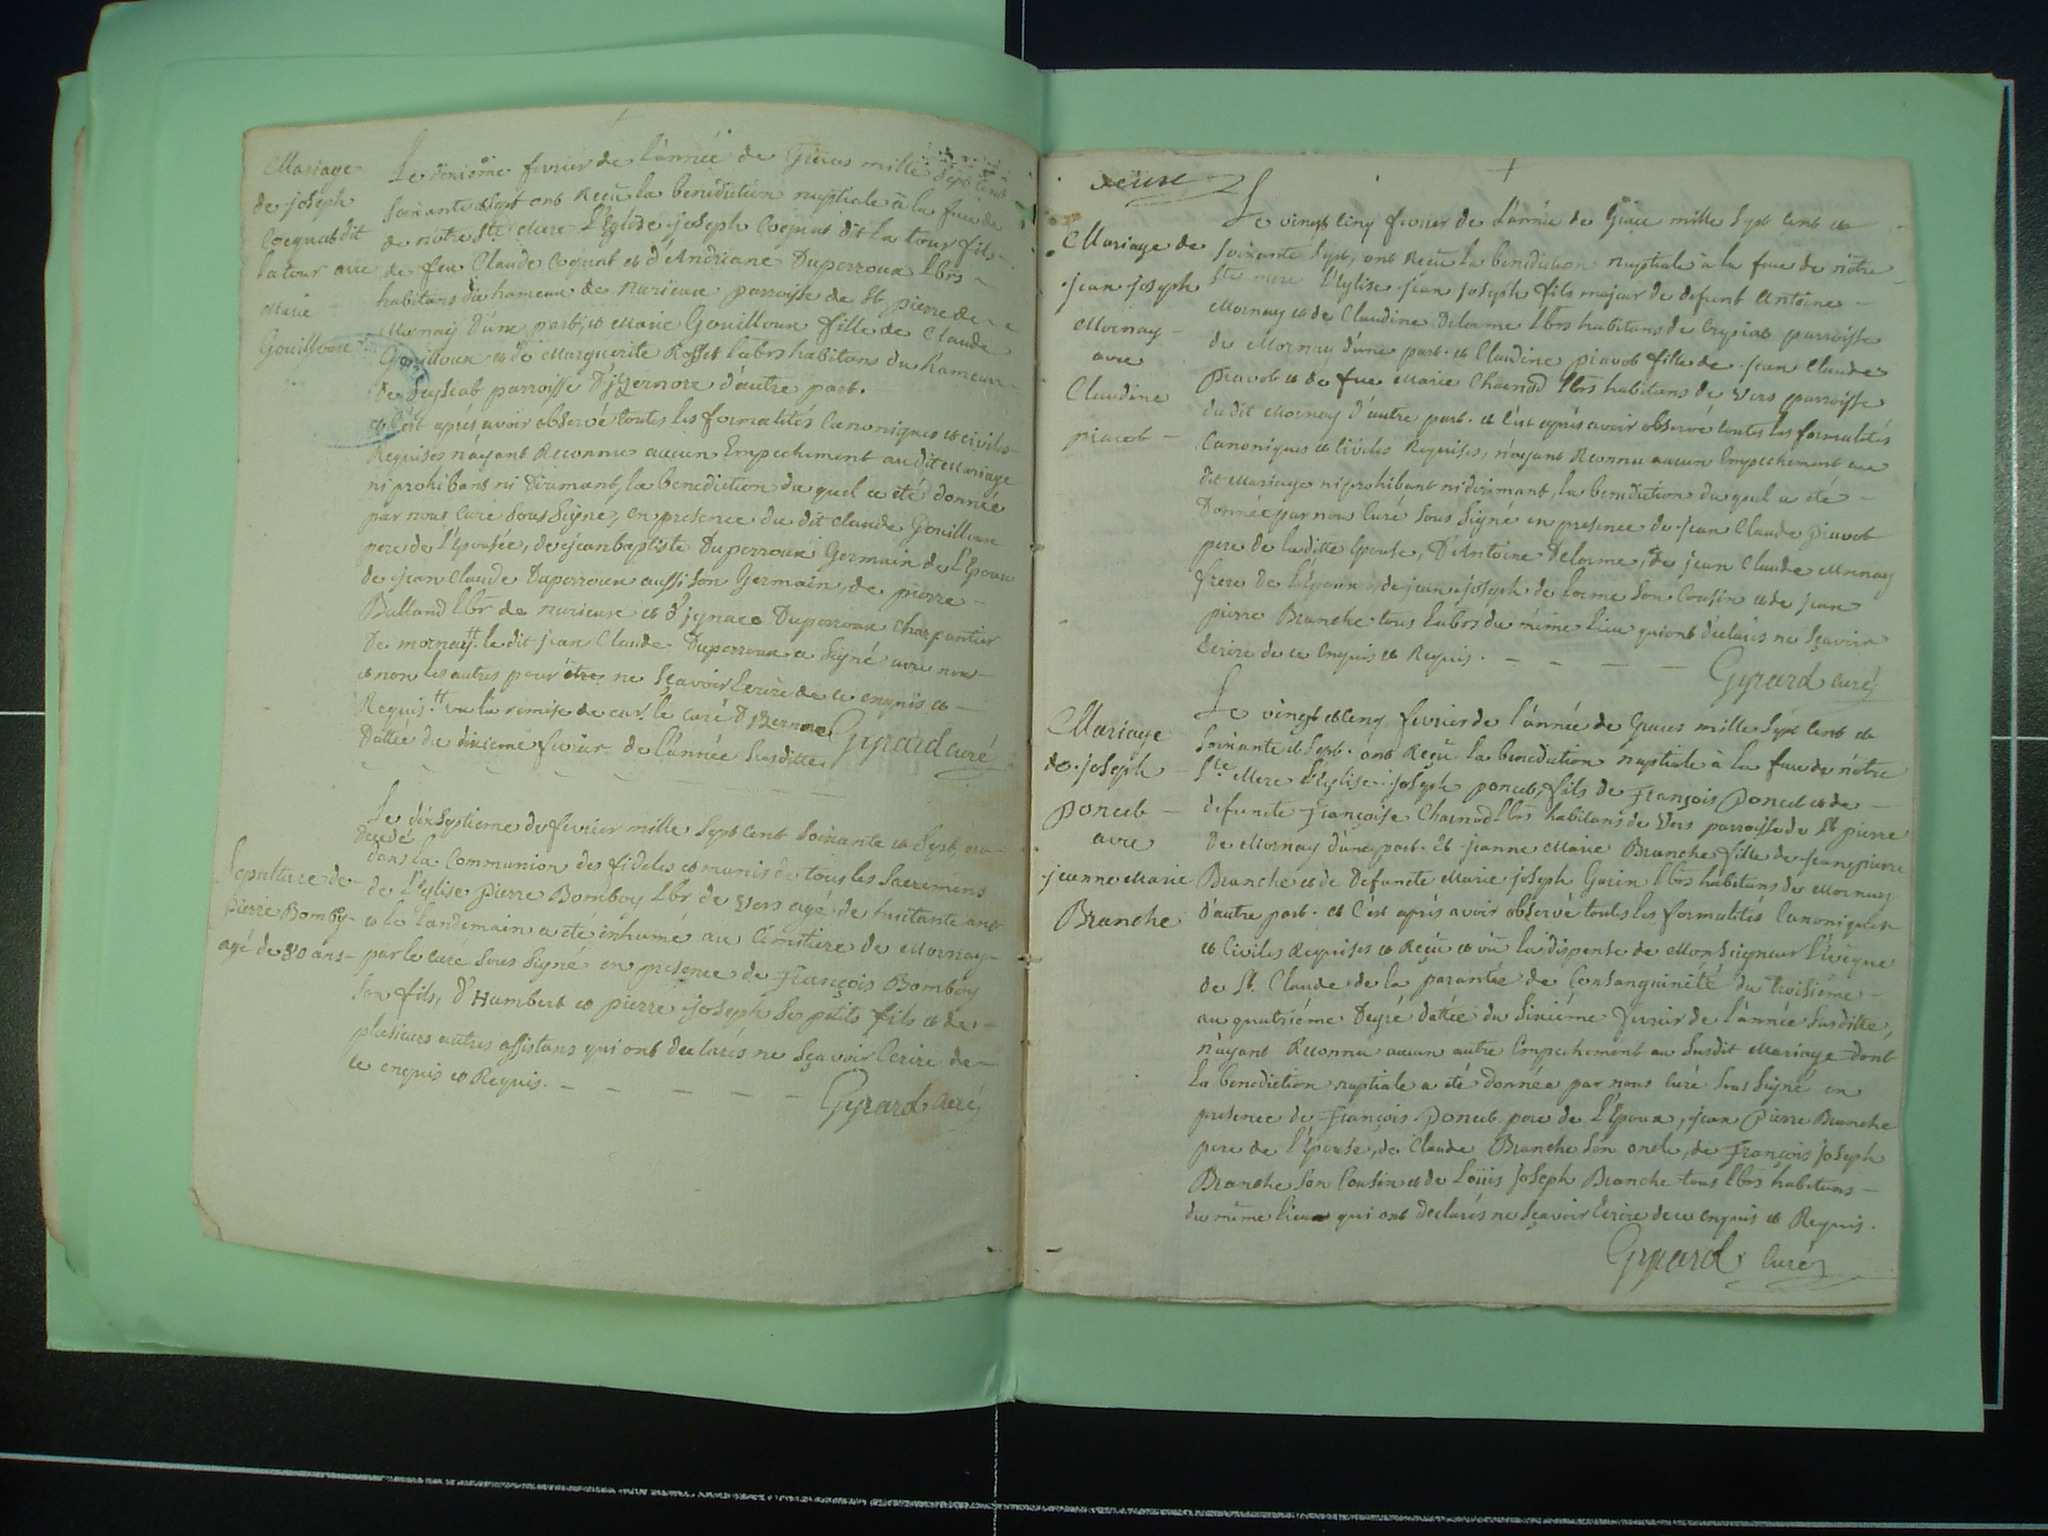 Mariage
de joseph
Coegnat dit
latour avec
Marie
Gouilloux
Le dixiême fevrier de l'année de Graces mille sept cent
soixante et sept ont Reçû la benediction nuptiale â la face de
de nôtre Ste Mere L'Eglise joseph Coegnat dit la tour fils
de feu Claude Cognat et d'Andriane Duperroux lbrs
habitans du hameau de nurieux parroisse de St pierre de
Mornay d'une part, et Marie Gouilloux fille de Claude
Gouilloux et de Marguerite Rosset labrs habitan du hameau
de parroisse D'jzernore d'autre part.
et C'est aprés avoir observé toutes les formalités Canoniques et civiles
Requises n'ayant Reconnu aucun Empechement audit Mariage
ni prohibans ni Dirimant, la benediction du quel a été donnée
par nous Curé sous signé, en presence du dit Claude Gouilloux
pere de l'Epousée, de jean baptiste Duperroux Germain de l'Epoux
de jean Claude Duperroux aussi son Germain, de pierre
Balland lbr de nurieux et d'jgnace Duperroux charpantier
De mornay. le dit jean Claude Duperroux a signé avec nous
et non les autres pour être ne sçavoir Ecrire de ce enquis et
Requis. vu la remise de cur. le curé D'jzernore
Dattée du dixiemé fevrier de l'année susditte. Gyrard curé
Sepulture de
pierre Bomboy
agé de 80 ans
Le dixseptieme de fevrier mille sept cent soixante et sept, est
decedé
dans la Communion des fideles et munis de tous les sacremens
de l'Eglise pierre Bomboy lbr de Vers agé de huitante ans
et le landemain a été inhumé au Cimitiere de Mornay
par le curé sous signé en presence de François Bomboy
son fils, d'Humbert et pierre joseph se petits fils et de
plusieurs autres assistans qui ont declarés ne sçavoir Ecrire de
ce enquis et Requis.
Gyrard curé
deuxe
Mariage de
jean joseph
Mornay
avec
Claudine
piavot
Le vingt cinq fevrier de l'année de Grace mille sept cent et
soixante sept, ont Reçû la benediction nuptiale â la face de nôtre
Ste mere l'Eglise jean joseph fils majeur de defunt Antoine
Mornay et de Claudine Delorme lbrs habitans de Crypiat parroisse
de Mornay d'une part. et Claudine piavot fille de jean Claude
Piavot et de fue Marie Charnod lbrs habitans de Vers parroisse
du dit Mornay d'autre part. et C'est aprés avoir observé toutes les formalités
Canoniques et Civiles Requises, n'ayant Reconnu aucun Empechement au
dit Mariage ni prohibant ni dirimant, la benediction du quel a été
Donnée par nou Curé sous signé en presence de jean Claude piavot
pere de laditte Epouse, D'Antoine Delorme, de jean Claude Mornay
frere de l'époux, de jean joseph de lorme son Cousin et de jean
pierre Branche tous labrs du même lieu qui ont declarés ne sçavoir
Ecrire de ce Enquis et Requis.
Gyrard curé
Mariage
de joseph
poncet
avec
jeanne Marie
Branche
Le vingt et cinq fevrier de l'année de Graces mille sept cent et
soixante et sept. ont Reçû la benediction nuptiale à la face de nôtre
Ste Mere l'Eglise joseph poncet, fils de François Poncet et de
defuncte Françoise Charnod lbrs habitans de Vers parroisse de St pierre
De Mornay d'une part. Et jeanne Marie Branche fille de jean pierre
Branche et de Defuncte Marie joseph Garin lbrs habitans de Mornay
d'autre part. et C'est aprés avoir observé toutes les formalités Canoniques
et Civiles Requises et Reçû et vû la dispense de Monseigneur L'évêque
de St. Claude de la parantée de Consanguinété du troisiéme
au quatriéme Degré dattée du sixiéme fevrier de l'année susditte,
n'ayant Reconnu aucun autre Empechement au susdit Mariage dont
la benediction nuptiale a été donnée par nous Curé sous signé en
presence de François Poncet pere de l'Epoux, jean Pierre Branche
pere de l'Epouse, de Claude Branche son oncle, de François joseph
Branche son Cousin et de Loüis joseph Branche tous lbrs habitans
du même lieux qui ont declarés ne sçavoir Ecrire de ce enquis et Requis.
Gyrard Curé